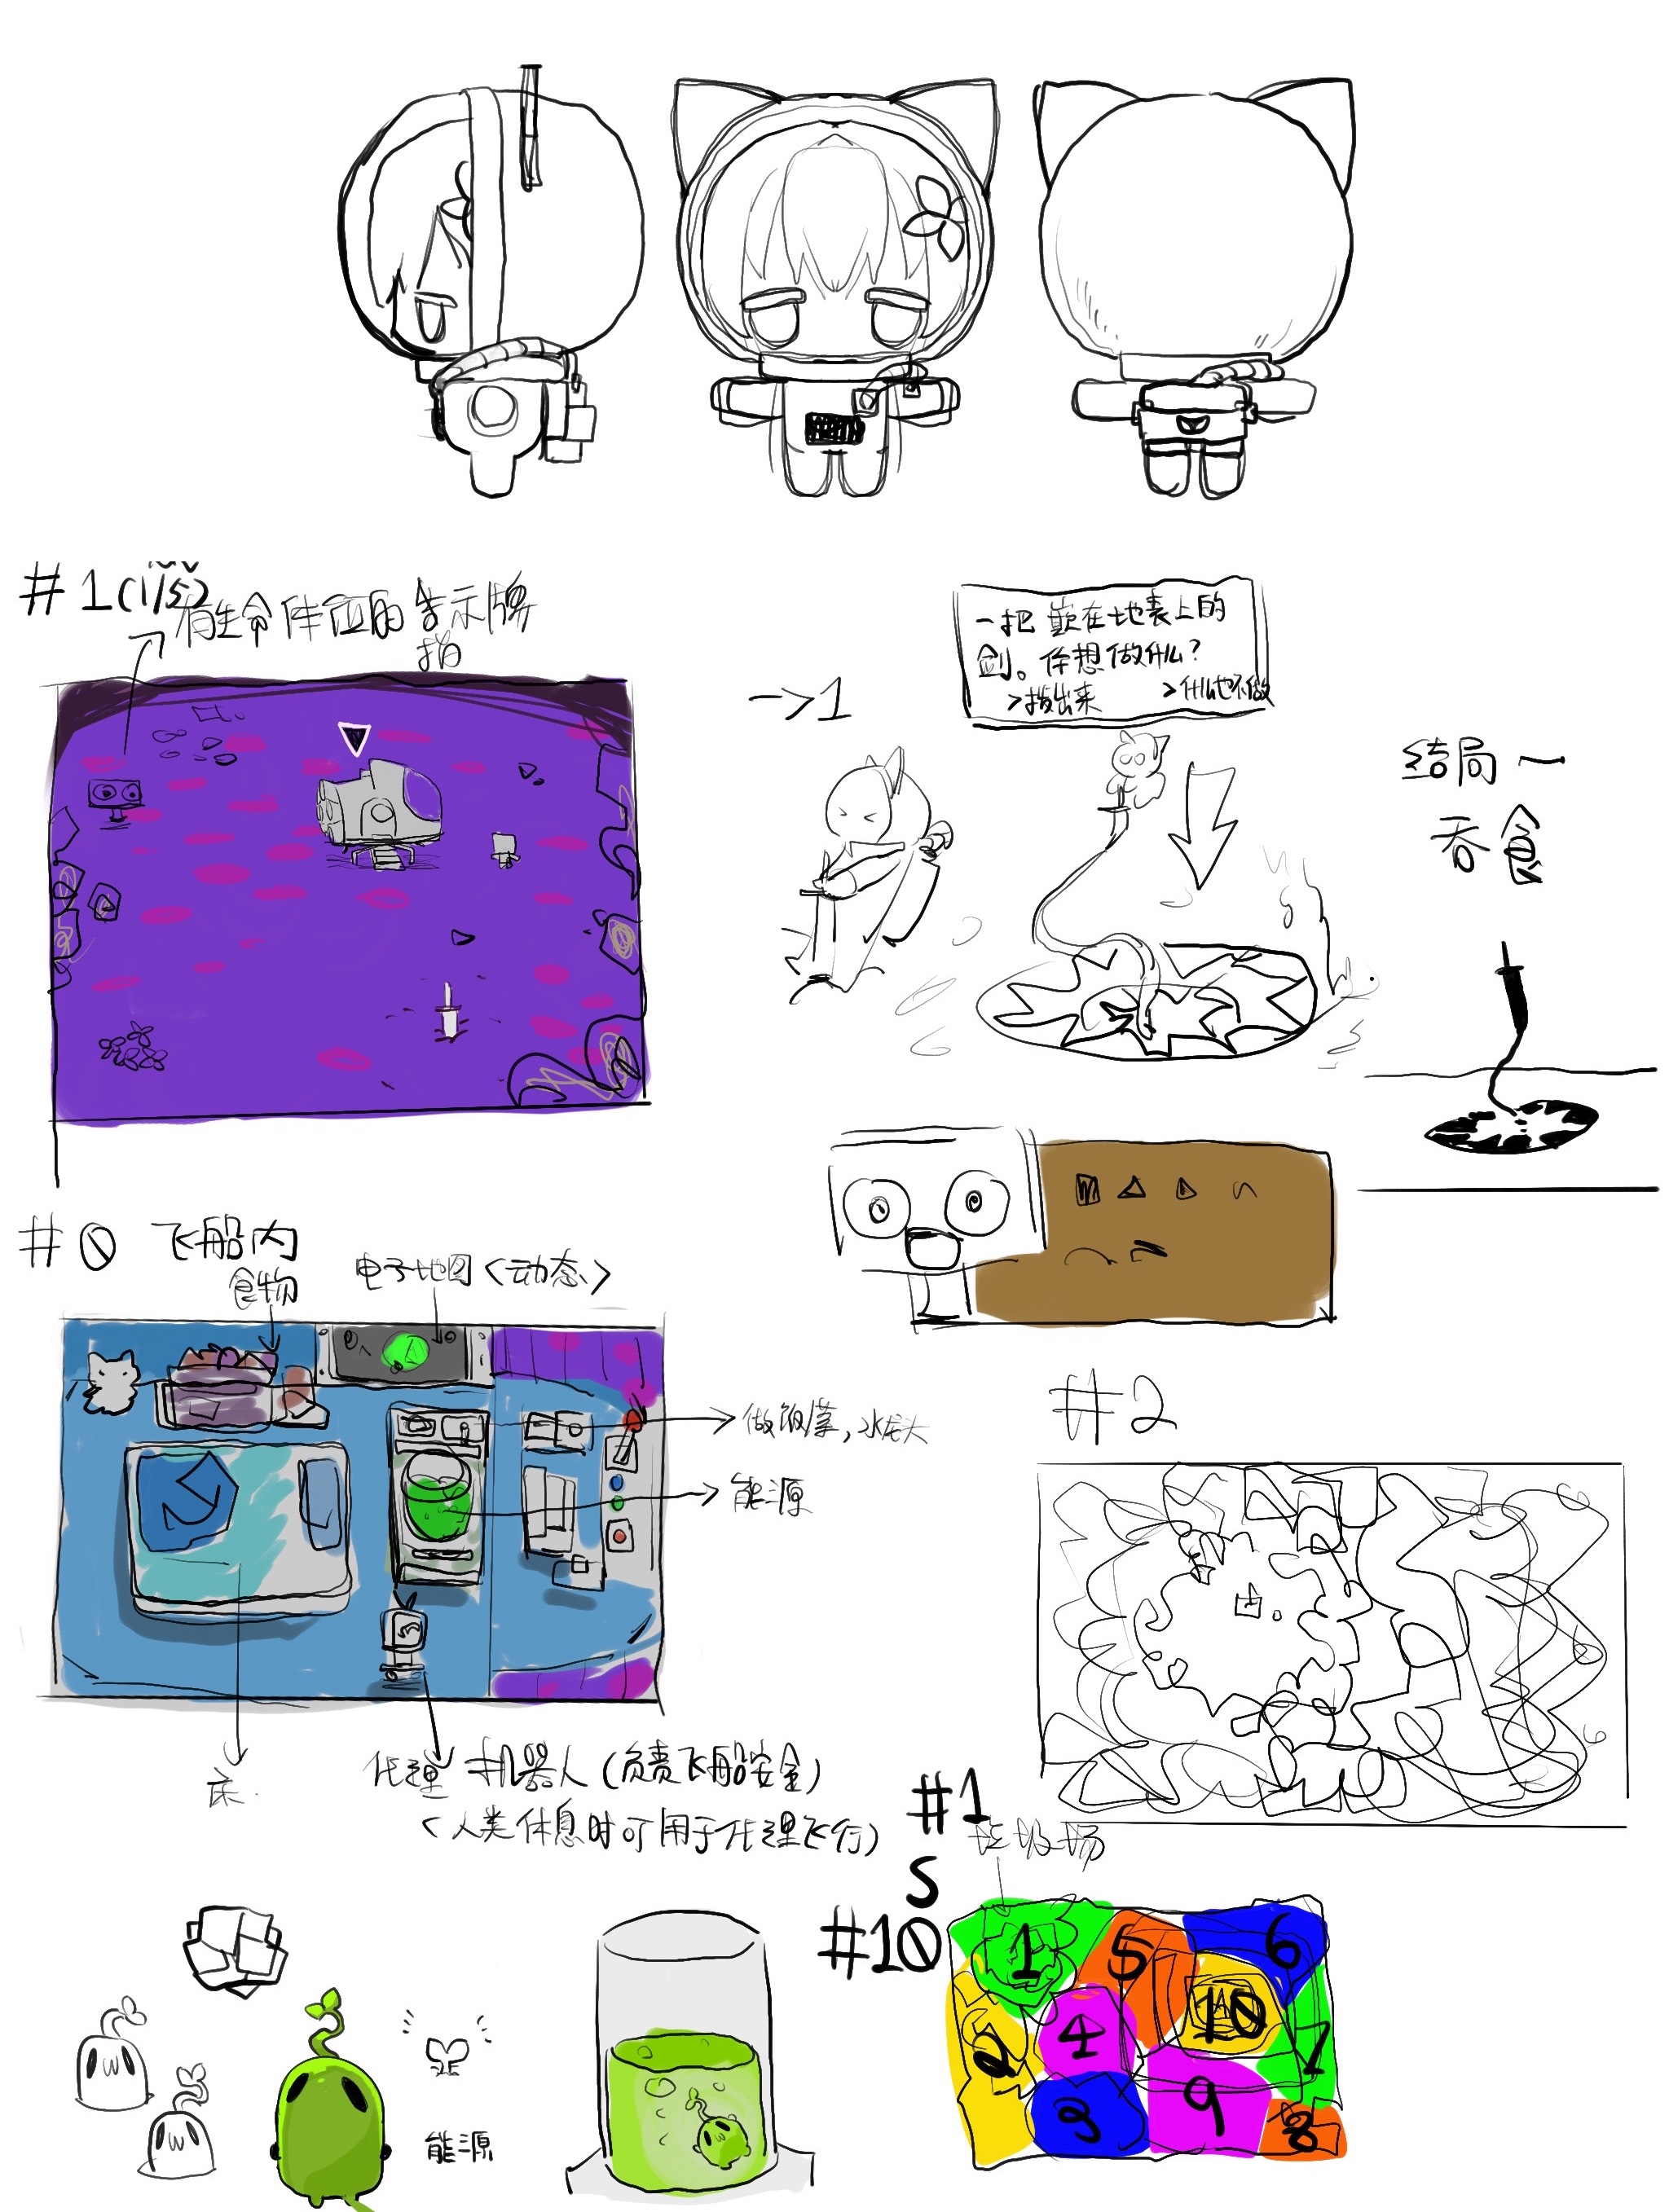 #1(1/5)
有生命体征的告示牌
指
一把嵌在地表上的
剑。你想做什么?
>拔出来 >什么也不做
->1
结局一
吞食
#0 飞船内
食物
电子地图<动态>
做饭菜,水龙头
能源
床.
代理机器人(负责飞船安全)
(人类休息时可用于代理飞行)
#2
#1
垃圾场
S
#10
1
5
6
2
4
10
7
3
9
8
能源